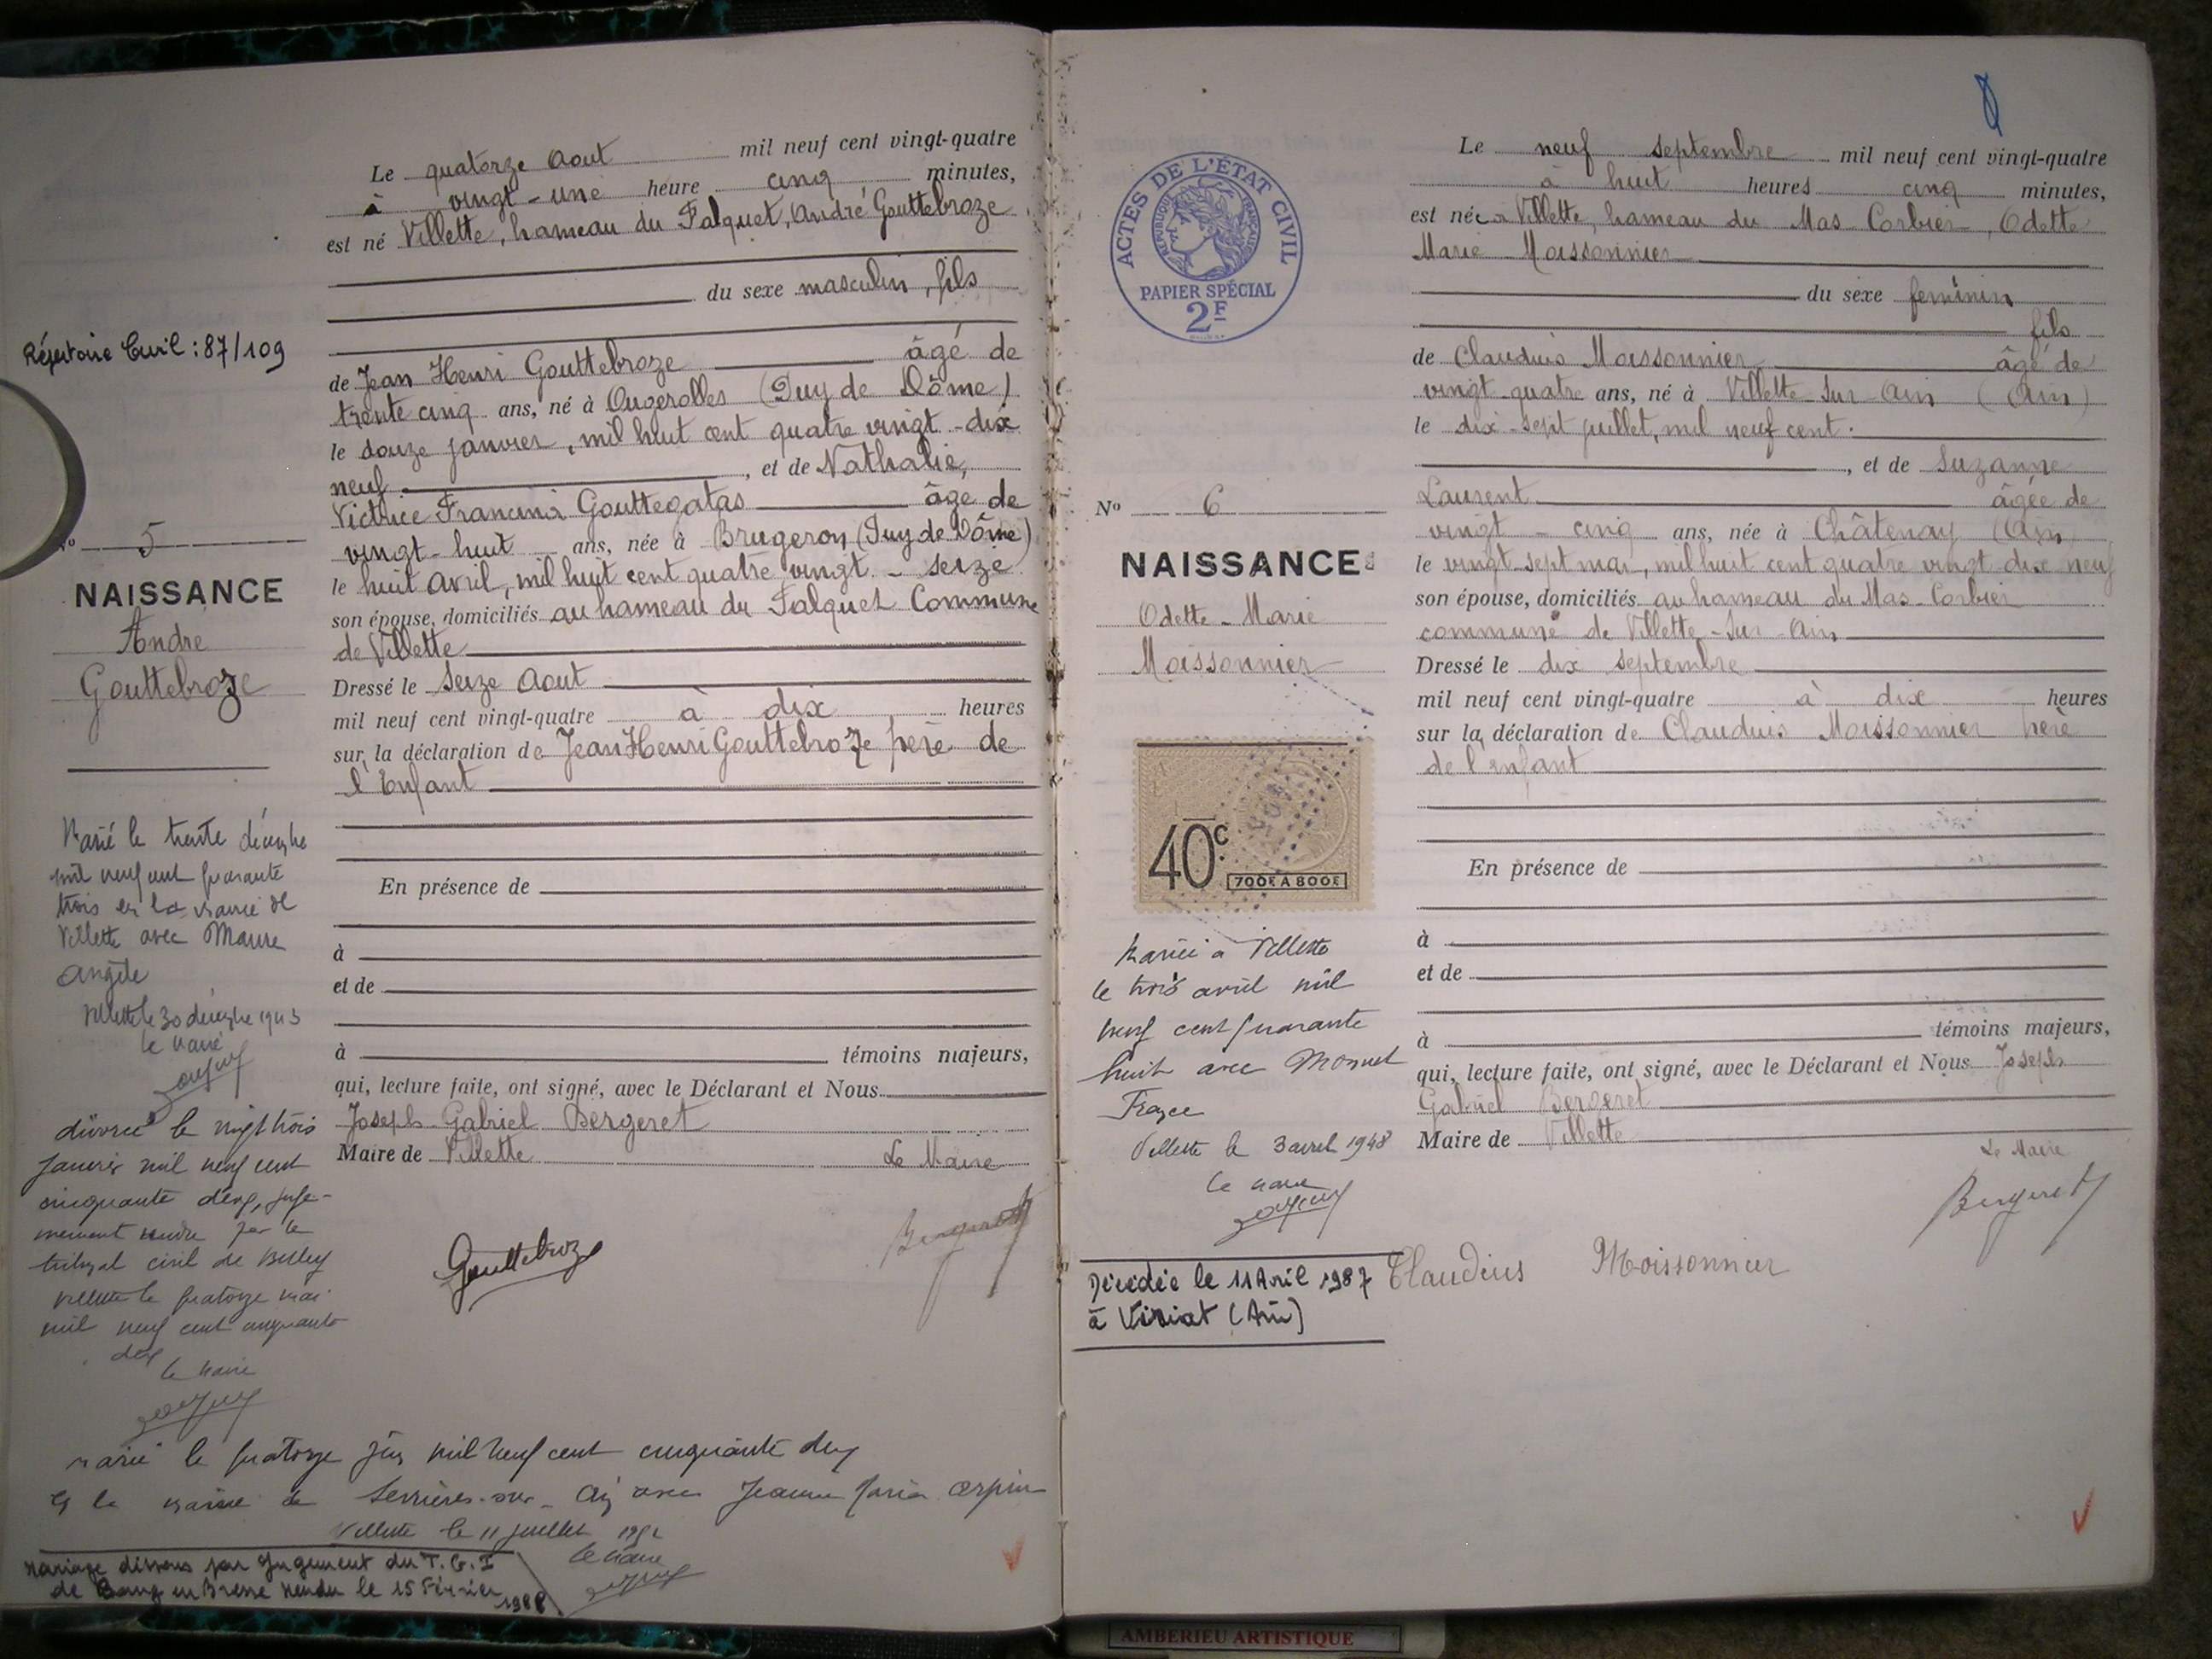 Le quatorze Aout mil neuf cent vingt-quatre
à vingt-une heure cinq minutes,
est né Villette, hameau du Falquet, André Gouttebroze
du sexe masculin, fils
de Jean Henri Gouttebroze âgé de
trente cinq ans, né à Augerolles (Puy de Dôme)
le douze janvier, mil huit cent quatre vingt-dix
neuf, et de Nathalie,
Victrice Francina Gouttegatas âge de
vingt-huit ans, née à Brugeron (Puy de Dôme)
le huit avril, mil huit cent quatre vingt-seize
son épouse, domiciliés au hameau du Falquet Commune
de Villette
Dressé le Seize Aout
mil neuf cent vingt-quatre à dix heures
sur la déclaration de Jean Henri Gouttebroze père de
l'Enfant
En présence de
à
et de
à témoins majeurs,
qui, lecture faite, ont signé, avec le Déclarant et Nous
Joseph Gabriel Bergeret
Maire de Villette Le Maire
Gouttebroze Bergeret
Répertoire Civil : 87/109
N° 5
NAISSANCE
André
Gouttebroze
Marié le trente décembre
mil neuf cent quarante
trois en la mairie de
Villette avec
Angèle
Villette le 30 décembre 1943
le maire
divorcé le vingt trois
Janvier mil neuf cent
cinquante deux, juge-
mement rendu par le
tribunal civil de Belley
Villette le quatorze mai
mil neuf cent cinquante
deux
le maire
marié le quatorze juin mil neuf cent cinquante deux
en la mairie de Serrières-sur-Ain avec Jeanne Maria
Villette le 11 juillet 1952
le maire
Mariage dissous par Jugement du T.G.I
de Bourg en Bresse rendu le 15 Février
1988
ACTES DE L'ÉTAT CIVIL
RÉPUBLIQUE FRANÇAISE
PAPIER SPÉCIAL
2F
N° 6
NAISSANCE
Odette-Marie
Moissonnier
40c
700F A 800F
Mariée à Villette
le trois avril mil
neuf cent quarante
huit avec Monnet
Villette le 3 avril 1948
le maire
Décédée le 11 Avril 1987
à Viriat (Ain)
Le neuf septembre mil neuf cent vingt-quatre
à huit heures cinq minutes,
est née à Villette, hameau du Mas Corbier, Odette
Marie Moissonnier
du sexe feminin
fils
de Claudius Moissonnier âgé de
vingt-quatre ans, né à Villette-Sur-Ain (Ain)
le dix-sept juillet, mil neuf cent.
, et de Suzanne
Laurent âgée de
vingt-cinq ans, née à Châtenay (Ain)
le vingt-sept mai, mil huit cent quatre vingt-dix neuf
son épouse, domiciliés au hameau du Mas-Corbier
commune de Villette-Sur-Ain
Dressé le dix septembre
mil neuf cent vingt-quatre à dix heures
sur la déclaration de Claudius Moissonnier père
de l'enfant
En présence de
à
et de
à témoins majeurs,
qui, lecture faite, ont signé, avec le Déclarant et Nous Joseph
Gabriel Bergeret
Maire de Villette
Le Maire
Bergeret
Claudius Moissonnier
AMBERIEU ARTISTIQUE